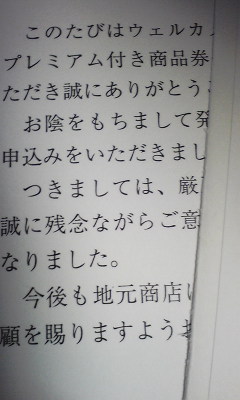 このたびはウェルカ
プレミアム付き商品券
ただき誠にありがとう
お陰をもちまして発
申込みをいただきまし
つきましては、厳
誠に残念ながらご意
なりました。
今後も地元商店
顧を賜りますよう